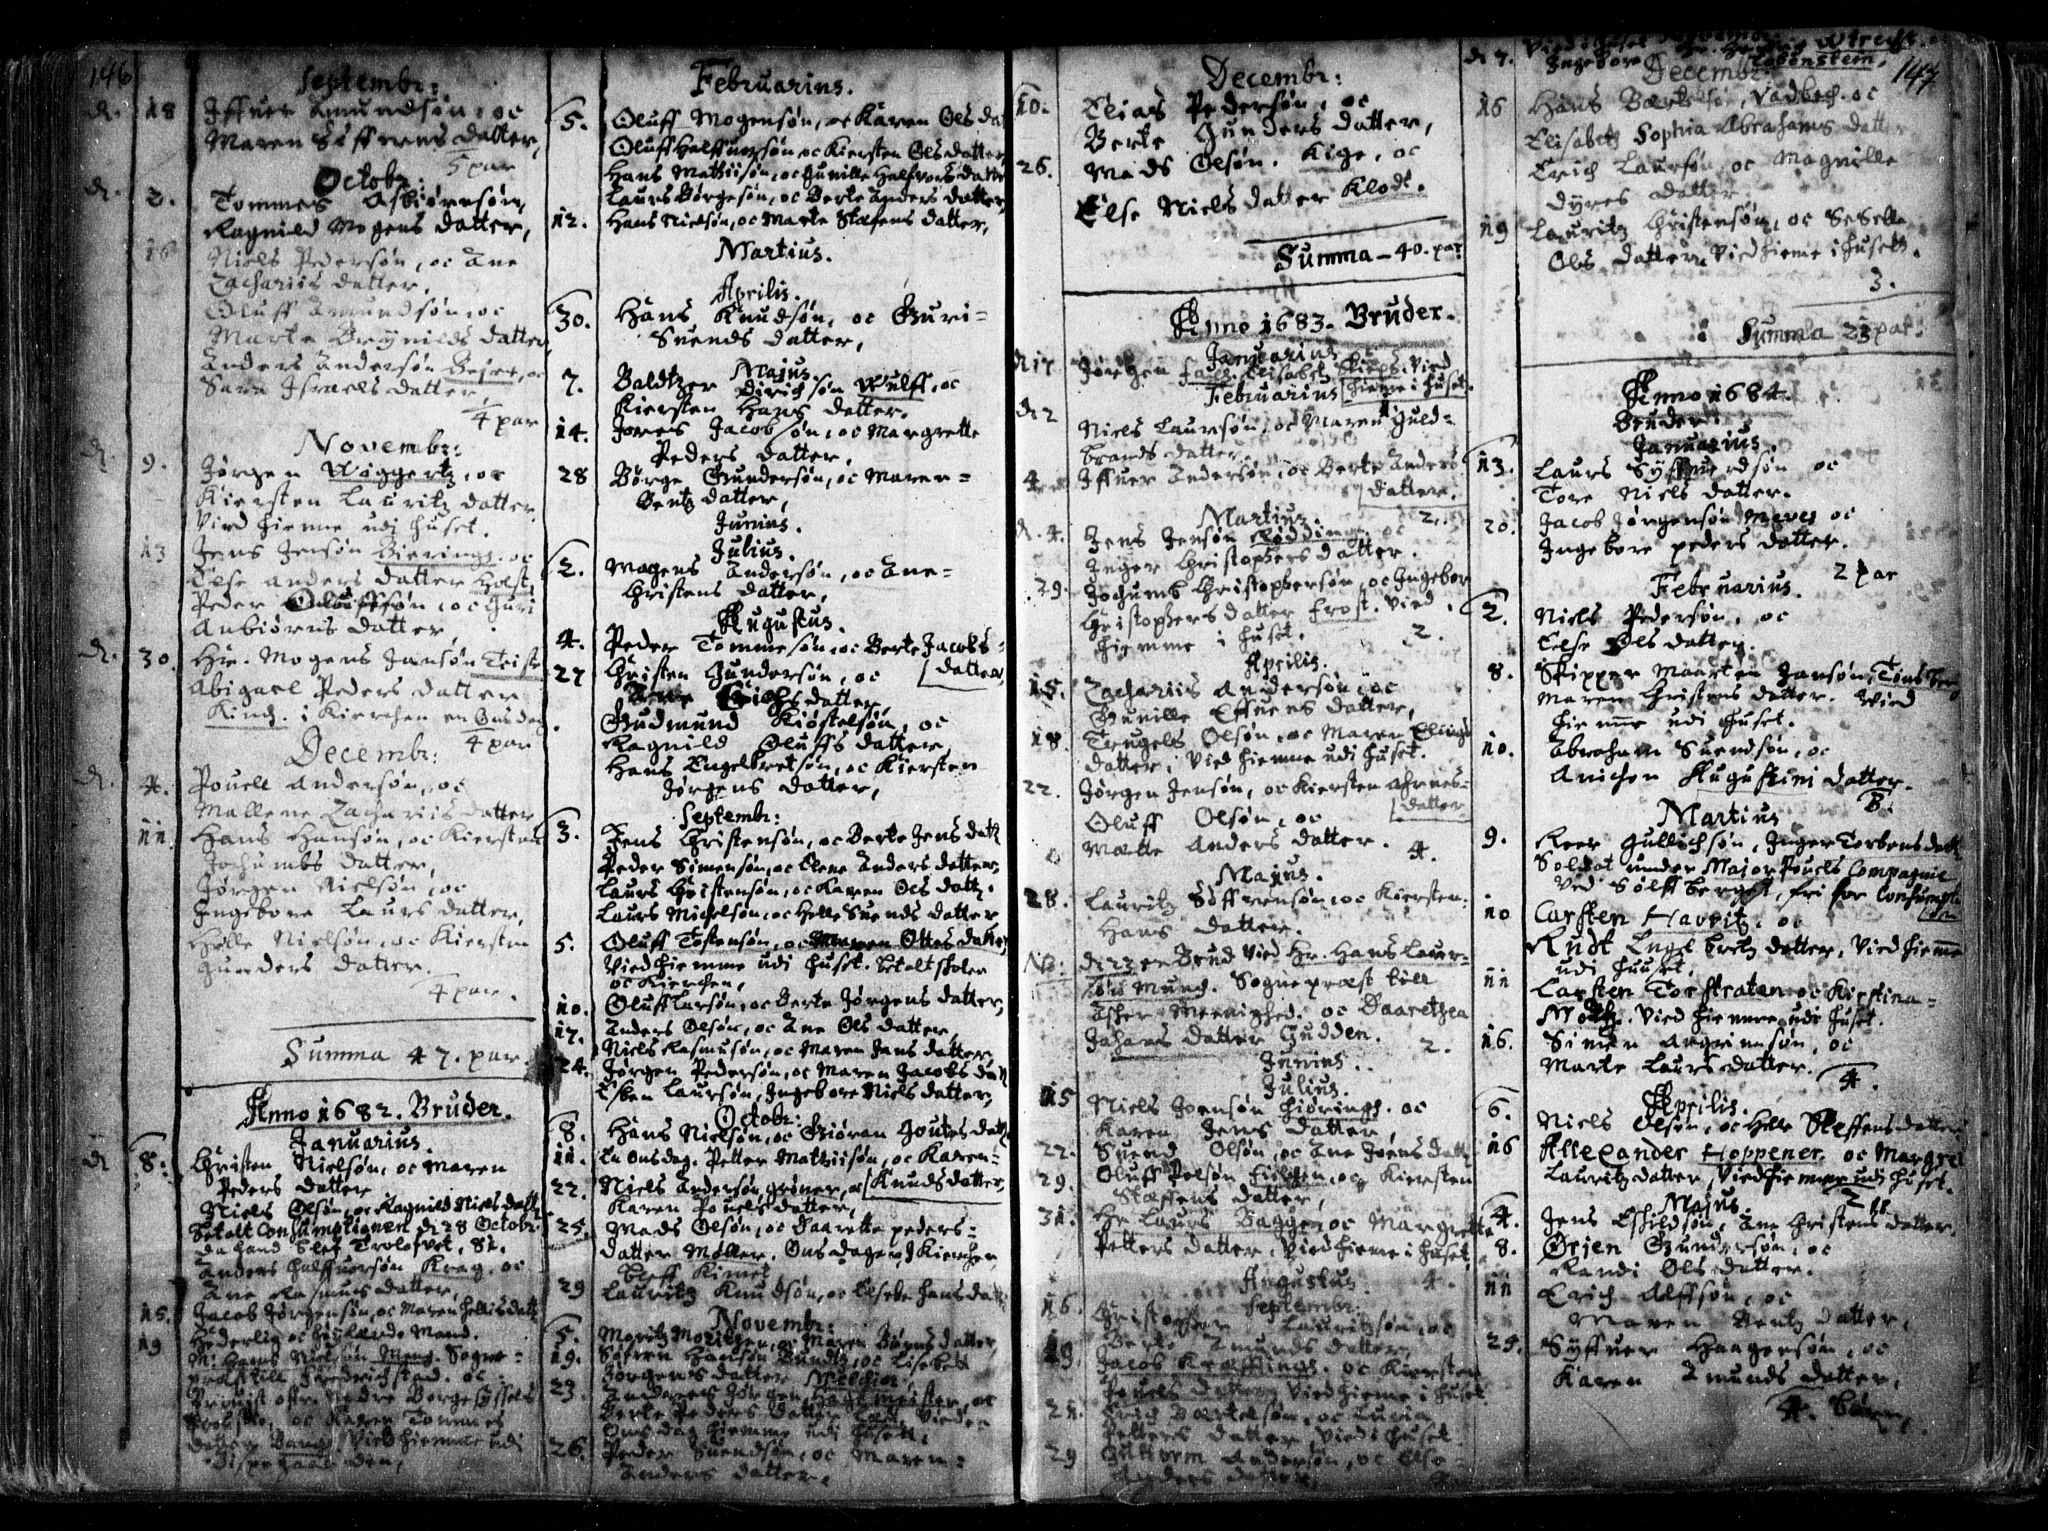 146
Septembr:
d. 18 Iffuer Amundsøn, oc
Maren Siffrens datter,
5 par
Octobr:
d. 2. Tommes Asbiørnsøn,
Ragnild Mogens datter,
16 Niels Pedersøn, oc Ane
Zachariis datter,
Oluff Amundsøn, oc
Marte Brynilds datter,
Anders Andersøn Beier, oc
Sara Israels datter,
4 par
Novembr:
d. 9. Jørgen Wiggertz, oc
Kiersten Lauritz datter
Vied hiemme udj huset.
13 Jens Jensøn Bierings. oc
Else Anders datter Holst,
Peder Oluffsøn, oc Guri
Anbiørns datter,
d. 30. Hr. Mogens Jansøn Trist
Abigael Peders datter
Kinch. i Kierchen en Onsdag.
4 par
Decembr:
d. 4. Pouell Andersøn, oc
Mallene Zachariis datter
11. Hans Hansøn, oc Kiersten
Jochumbs datter,
Jørgen Nielsøn, oc
Ingeborre Laurs datter,
Helle Nielsøn, oc Kiersten
Gunders datter.
4 par.
Summa 47. par.
Anno 1682. Bruder.
Januarius.
d 8. Christen Nielsøn, oc Maren
Peders datter
Niels Olsøn, oc Ragnild Niels datt
Betalt Consumptionen di 28 Octobr.
da hand blef Trolofvet, Sk.
Anders Halffuorsøn Krag. oc
Ane Rasmus datter,
15. Jacob Jørgensøn, oc Maren Hellis datt
19 Hæderlig oc høylærde Mand.
M: Hans Nielsøn Meng. Sogne-
præst till Fredrichstad. oc
Prouist ofr. Nedre Borge Syssels
Prousti, oc Karen Tommes
datter Bang. Vied hiemme udi
Februarius.
5. Oluff Mogensøn, oc Karen Ols da
Oluff Halffuorsøn, oc Kiersten Ols datter
Hans Mathiisøn, oc Gunille Halfvors datter
Laurs Børgesøn, oc Berte Anders datter,
12. Hans Nielsøn, oc Marte Stefens datter,
Martius.
Aprilis.
30. Hans Knudsøn, oc Guri-
Suends datter,
Majus
7. Baldtzer Dirichsøn Wulff, oc
Kiersten Hans datter.
14. Joren Jacobsøn, oc Margrette
Peders datter,
28 Børge Gundersøn, oc Maren-
Bentz datter,
Junius.
Julius.
2. Mogens Andersøn, oc Ane-
Christens datter,
Augustus.
4. Peder Tommesøn, oc Berte Jacobs-
datter
27 Christen Gundersøn, oc
Erichs datter,
Gudmund Kiøstelsøn, oc
Ragnild Oluffs datter,
Hans Engelbretsøn, oc Kiersten
Jørgens datter,
Septembr:
3. Jens Christensøn, oc Berte Jens datt
Peder Simensøn, oc Elene Anders datter,
Laurs Christensøn, oc Karen Ols datt.
Laurs Michelsøn, oc Helle Suends datter
5. Oluff Tostensøn, oc Maren Ottes datter,
Vied hiemme udi huset. betalt skolen
oc Kierchen,
10. Oluff Larsøn, oc Berte Jørgens datter,
17. Anders Olsøn, oc Ane Ols datter,
Niels Rasmusøn, oc Maren Jans datter,
24. Jørgen Pedersøn, oc Maren Jacobs datt
Esben Laursøn, Ingeborre Niels datter,
Octobr:
8. Hans Nielsøn, oc Giøran Joutes datt
11. En Onsdag. Petter Mathiisøn, oc Karen-
Knuds datter,
22. Niels Andersøn grøner, oc
Karen Pouels datter,
25. Mads Olsøn, oc Daarette peders-
datter Møller. Onsdagen, i Kierchen
bleff Kimet
29 Lauritz Knudsøn, oc Lisebe Hans datt
Novembr:
5. Moritz Moritzen, oc Maren Biørns datter,
19. Søfren Hansøn Bundtz, oc Lisebett
Jørgens datter Melchior
23. Anders Jørgen Hagemeister, oc
Berte Peders datter Vieden
Onsdag hiemme udi husett.
26. Peder Suendsøn, oc Maren-
Anders datter,
Decembr:
10. Elias Pedersøn, oc
Berte Gunders datter,
26. Mads Olsøn. Kige, oc
Else Niels datter Klodt.
Summa - 40. par
Anno 1683. Bruder.
Januarius
d 17 Jørgen Falk. Elisabet Vied
hieme i huset.
Februarius
d 2 Niels Laursøn, oc Maren Guld-
brands datter.
4 Iffuer Andersøn, oc Berte Anders
datter.
2.
Martius.
d. 4. Jens Jensøn Rødding, oc
Inger Christophers datter.
29. Jochumb Christophersøn, oc Ingebor
Christophers datter Frost. Vied
hiemme i huset.
2.
Aprilis.
15. Zachariis Andersøn, oc
Gunille Effuens datter,
18. Trugels Olsøn, oc Maren Ellings
datter, Vied hiemme udi huset.
22. Jørgen Jensøn, oc Kiersten Ahrnes-
datter
Oluff Olsøn, oc
Mætte Anders datter.
4.
Majus.
28. Lauritz Søffrensøn, oc Kiersten
Hans datter.
NB: di 22 en Brud vied Hr. Hans Laur-
Mung. Sognepræst till
Asker Meenighed. oc Daarethea
Johans datter Gudden.
2.
Junius.
Julius.
15 Niels Joensøn Hiørings. oc
Karen Jens datter
22. Suend Olsøn, oc Ane Joens datt
29. Oluff Polsøn oc Kiersten
Staffens datter,
31. Hr Laurs Bagge, oc Margrette
Petters datter, Vied hieme i huset,
4.
Augustus
Septembr:
16. Christopher Lauritzsøn, oc
Berte Amunds datter,
19. Jacob Kræfftings. oc Kiersten
Pouels datter Vied hieme i huset
21. Erich Bertelsøn, oc Luria
Petters datter Vied i huset.
29 Guttorm Andersøn, oc Else-
Anders datter
147
d 7.
Ingebore Lobenstein.
Decembr:
16 Hans Bærtelsøn, Vadbech. oc
Elisabetz Sophia Abrahams datter
Erich Laursøn, oc Magnille
Dyres datter
19 Lauritz Christensøn, oc Seselle
Ols datter. Vied hieme i husett.
3.
Summa 23 par.
Anno 1684.
Bruder.
Januarius.
13. Laurs Syffuerdsøn oc
Tore Niels datter.
20. Jacob Jørgensøn Meves oc
Ingebore peders datter.
2 par
Februarius.
2. Niels Pedersøn, oc
Else Ols datter.
8. Skipper Maarten Jansøn, Tønsber
Maren Christens datter. Vied
hiemme udi huset.
10. Abraham Suendsøn, oc
Anichen Augustini datter.
3.
Martius
9. Reer Gullichsøn, Inger Torbens datt
Soldat under Major Pouels Compagnie
Ved Sølffberget, fri for Consumption
10 Carsten Havvitz, oc
Rudt Engelbretz datter, Vied hieme
udi huuset,
11 Carsten Torstraten oc Kirstina-
Moltz. Vied hiemme udi huset.
16. Simen Argrimsøn, oc
Marte Laurs datter.
4.
Aprilis.
6. Niels Olsøn, oc Helle Steffens datter
16 Allexander Hoppener, oc Margre
Lauritz datter, Vied hiemme udi huset.
2 par
Majus.
4. Jens Eschildsøn, Ane Christens datter,
8. Ørjen Gundersøn, oc
Randi Ols datter.
11 Erich Alffsøn, oc
Maren Bentz datter,
24. Syffuer Haagensøn, oc
Karen Amunds datter,
4.